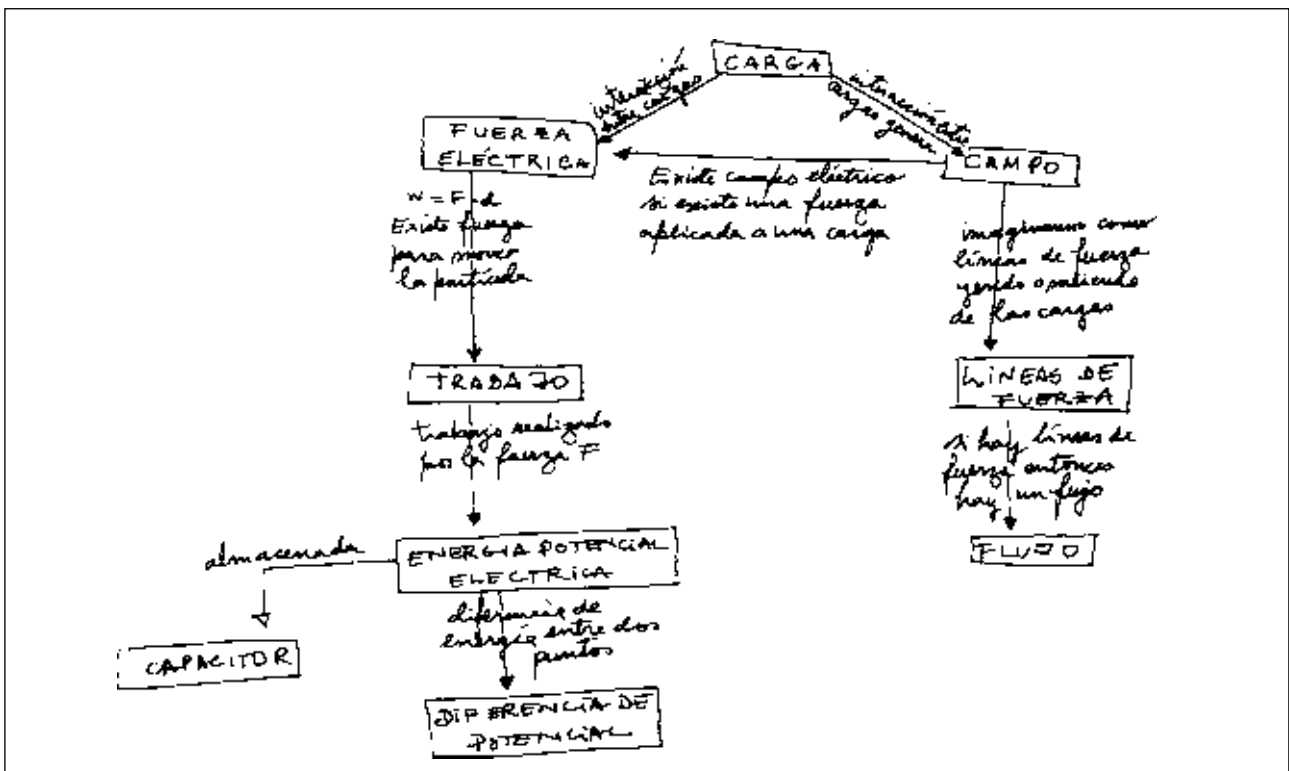 CARGA
interacción
entre cargas
interacción entre
cargas genera
FUERZA
ELÉCTRICA
CAMPO
Existe campo eléctrico
si existe una fuerza
aplicada a una carga
W = F · d
Existe fuerza
para mover
la partícula
imaginamos como
líneas de fuerza
yendo o saliendo
de las cargas
TRABAJO
LÍNEAS DE
FUERZA
trabajo realizado
por la fuerza F
si hay líneas de
fuerza entonces
hay un flujo
ENERGIA POTENCIAL
ELECTRICA
FLUJO
almacenada
diferencia de
energía entre dos
puntos
CAPACITOR
DIFERENCIA DE
POTENCIAL